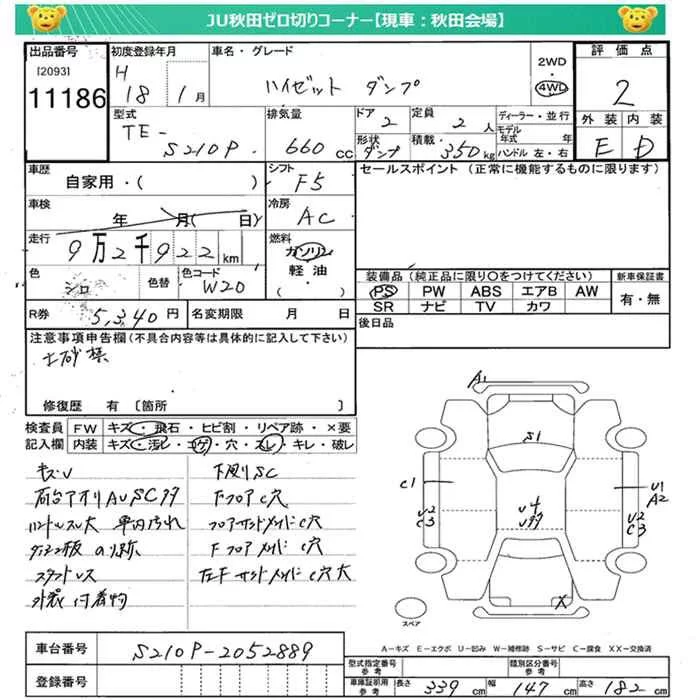 JU秋田ゼロ切りコーナー【現車：秋田会場】
出品番号
[2093]
11186
初度登録年月
H 18 1月
車名・グレード
ハイゼット ダンプ
2WD
4WD
評価点
2
外装 内装
E D
型式
TE-
S210P
排気量
660 cc
ドア
2
形状
ダンプ
定員
2 人
積載
350 kg
ディーラー・並行
モデル
年式 年
ハンドル 左・右
車歴
自家用・( )
シフト
F5
セールスポイント (正常に機能するものに限ります)
車検
年 月( 日)
冷房
AC
走行
9万2千922 km
燃料
ガソリン
軽油
( )
色
シロ
色替
色コード
W20
装備品 (純正品に限り○をつけてください)
PS PW ABS エアB AW
SR ナビ TV カワ
新車保証書
有・無
R券 5,340円
名変期限 月 日
後日品
注意事項申告欄(不具合内容等は具体的に記入して下さい)
土砂様
修復歴 有 〔箇所 〕
検査員
記入欄
FW キズ・飛石・ヒビ割・リペア跡・×要
内装 キズ・汚レ・コゲ・穴・スレ・キレ・破レ
キズU
下廻りSC
荷台アオリAUSC
ハンドルスレ大 車内汚れ
Fフロア C穴
フロアサイドメンバ C穴
Fフロア メンバ C穴
スタッドレス
左F サイドメンバ C穴大
外装 付着物
A1
S1
C1
U1
A2
U2
C3
U2
C3
X
スペア
A－キズ E－エクボ U－凹み W－補修跡 S－サビ C－腐食 XX－交換済
車台番号
S210P-2052889
登録番号
型式指定番号
参考
類別区分番号
参考
車庫証明用
参考
長さ 339 cm
幅 147 cm
高さ 182 cm